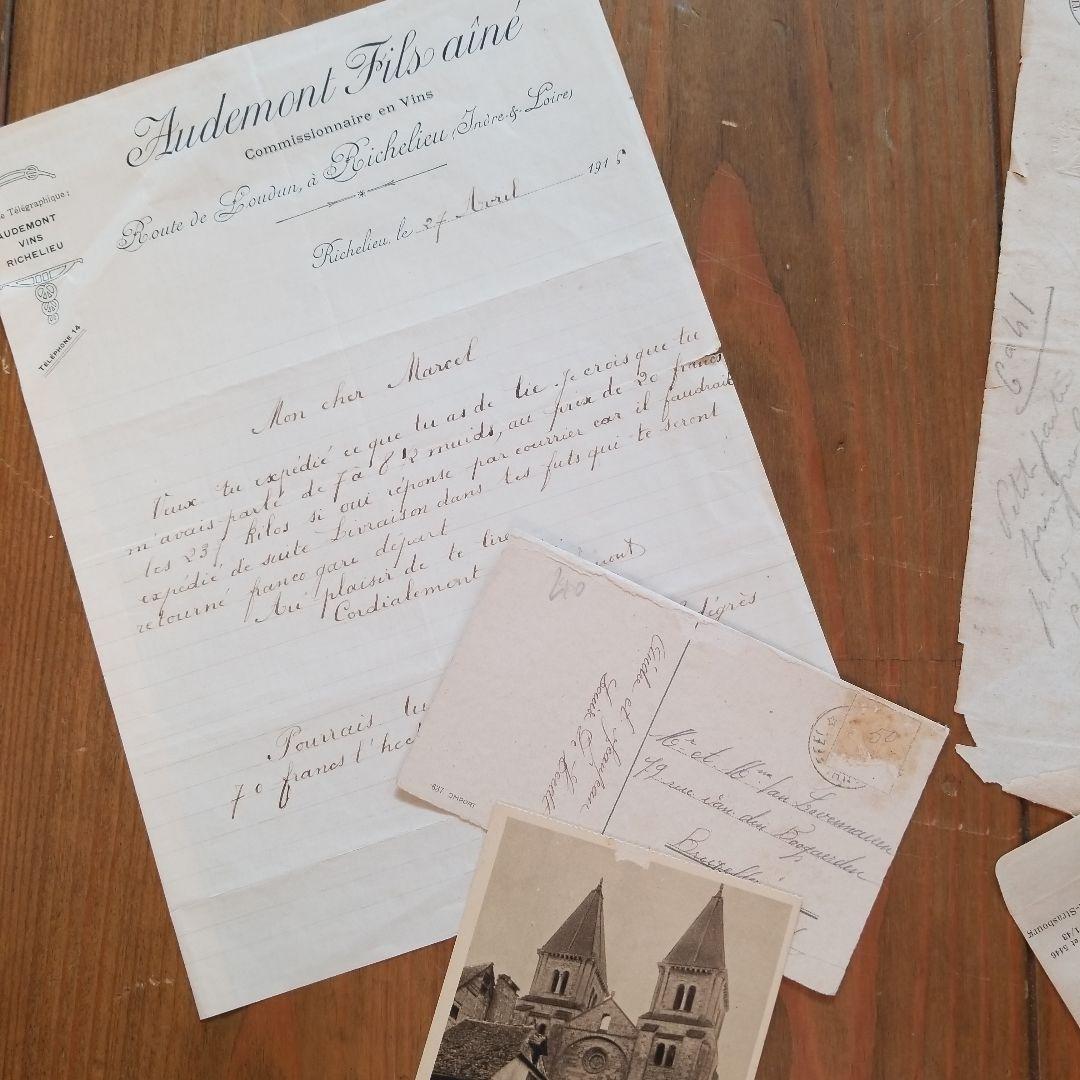 Audemont Fils aîné
Commissionnaire en Vins
Route de Loudun, à Richelieu (Indre-&-Loire)
e Télégraphique:
AUDEMONT
VINS
RICHELIEU
TÉLÉPHONE 14
Richelieu, le 27 Avril 1915
Mon cher Marcel
Veux tu expédié ce que tu as de lie. Je crois que tu
m'avais parlé de 7 à 8 12 muids, au prix de 20 francs
les 235 kilos si oui réponse par courrier car il faudrait
expédié de suite Livraison dans tes futs qui te seront
retourné franco gare départ
Au plaisir de te lire
Cordialement
degrès
Pourrais tu
70 francs l'hec
40
et
Louise
Mr et Mme Van
79 rue van den
Bruxelles
50
637 OMBORT
6941
Petite
-Strasbourg
1/43
et 5446